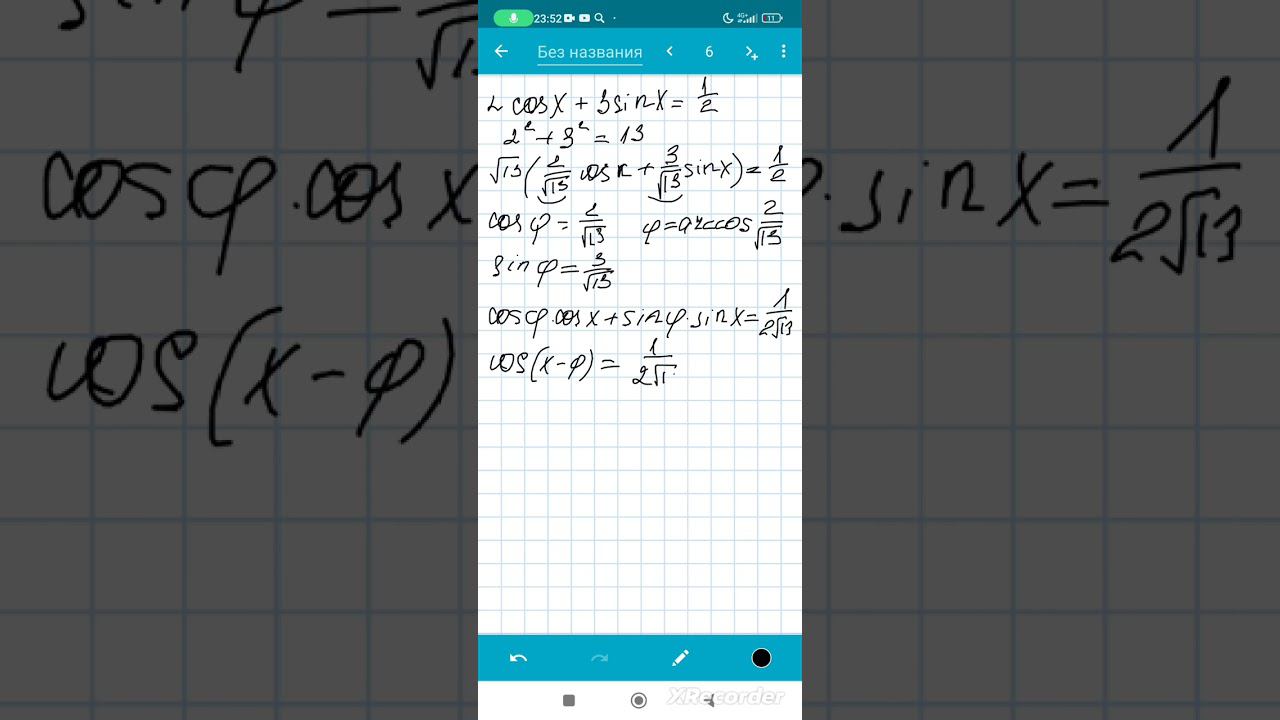 23:52 4G+ 11
Без названия 6
2 cosx + 3sinx = 1/2
2² + 3² = 13
√13 (2/√13 cosx + 3/√13 sinx) = 1/2
cosφ = 2/√13 φ = arccos 2/√13
sinφ = 3/√13
cosφ·cosx + sinφ·sinx = 1/2√13
cos(x-φ) = 1/2√1
XRecorder
√13
cosφ·cosx
·sinx = 1/2√13
cos(x-φ)